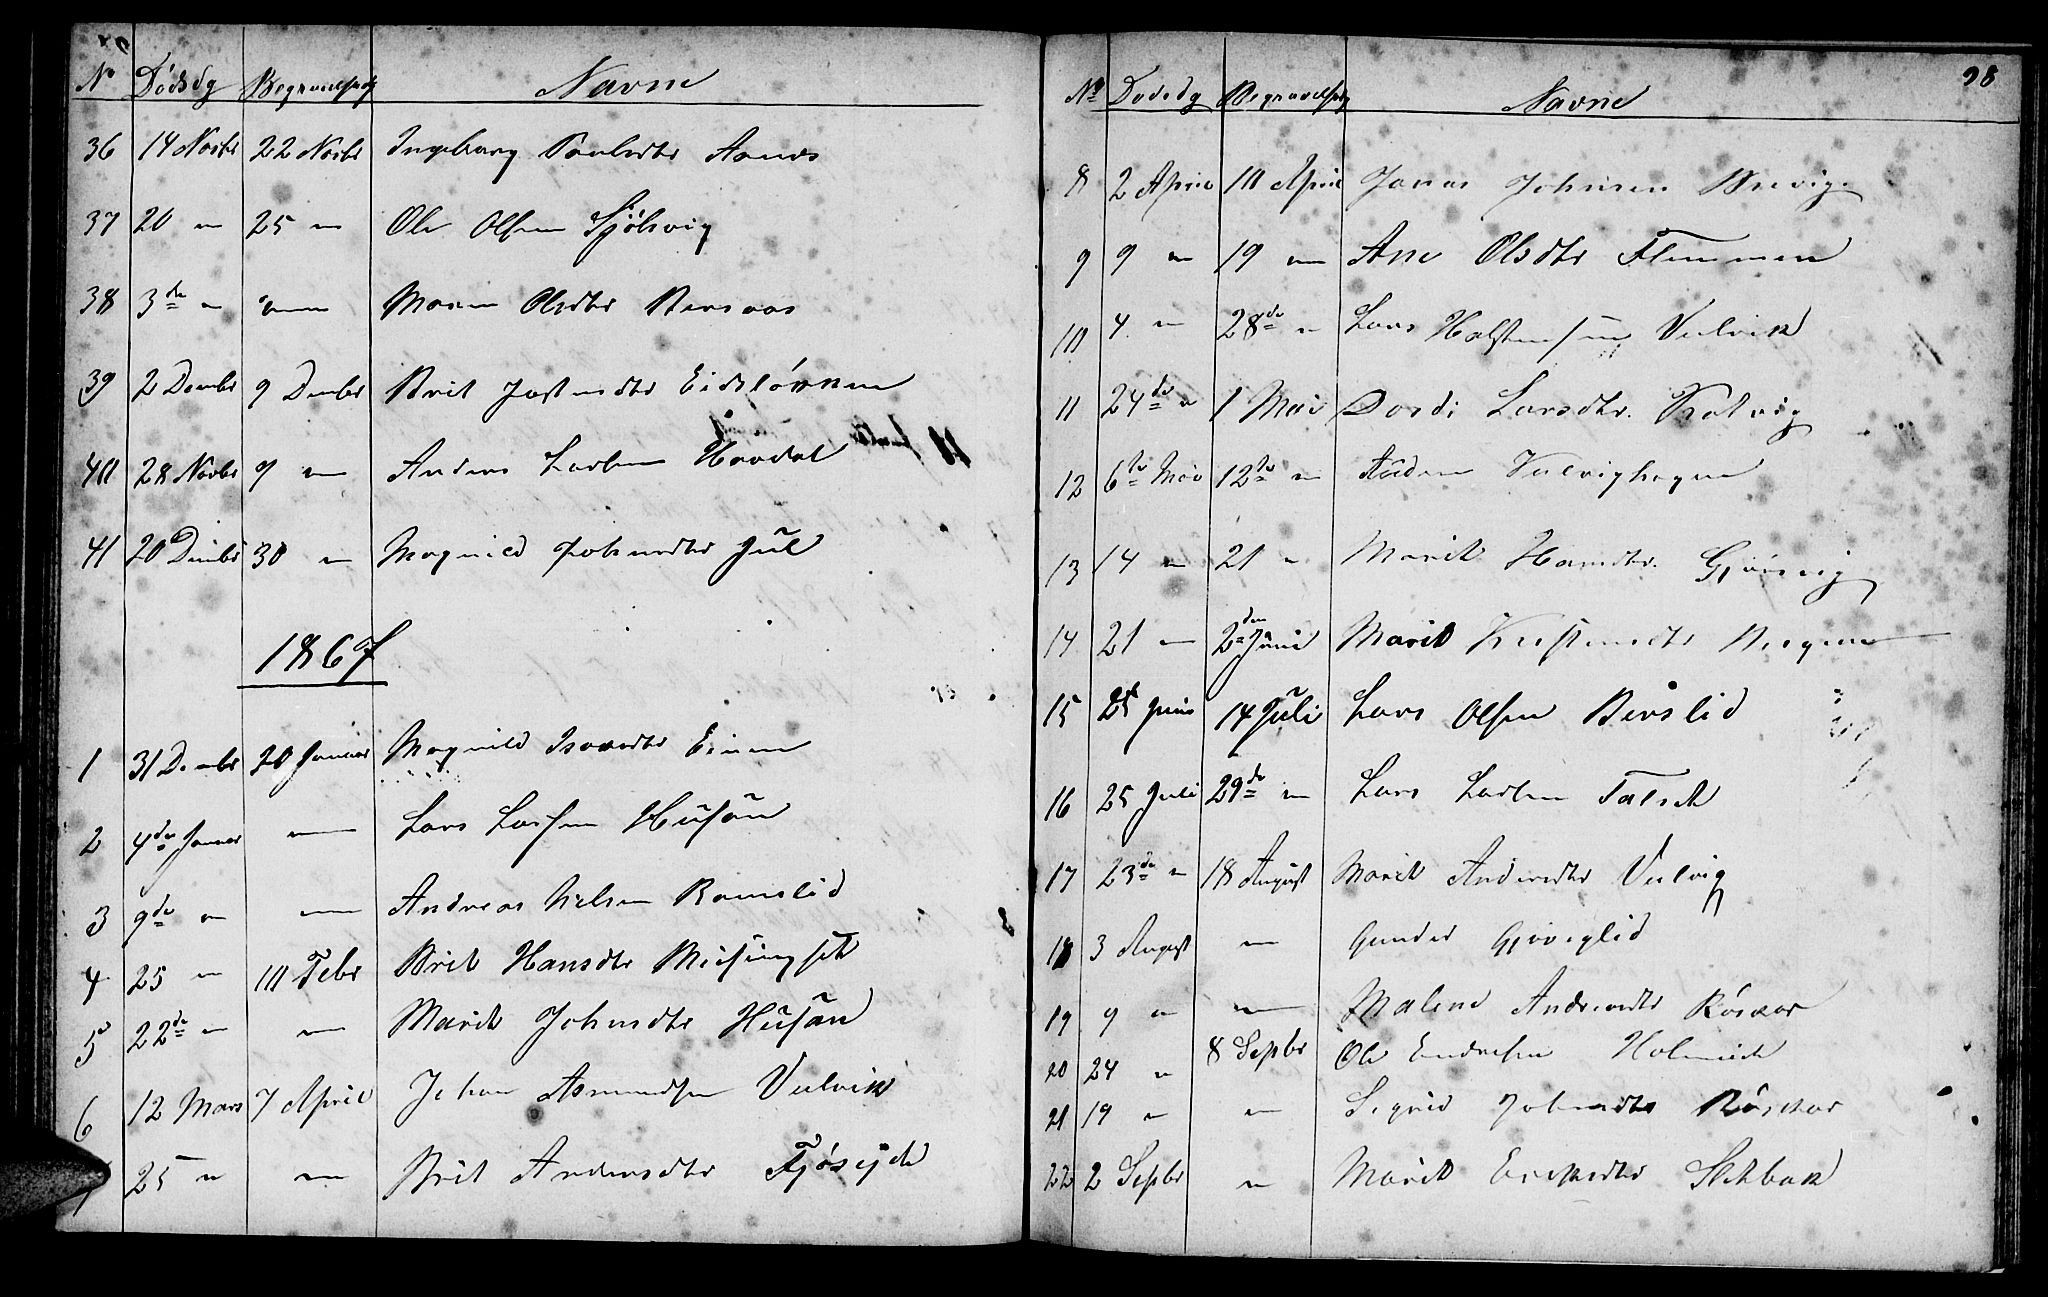 No Dødsdg Begravelsesdg Navne
36 14 Novbr 22 Novbr Ingeborg Paulsdtr
37 20 " 25 " Ole Olsen Sjølsvig
38 3de " " Maren Olsdtr Versaas
39 2 Decmbr 9 Decmbr Brit Jostensdtr
40 28 Novbr 9 " Anders Larsen Hovdal
41 20 Decmbr 30 " Magnild Johnsdtr Jul
1867
1 31 Decmbr 20 Januar Magnild Isaksdtr
2 4de Januar " Lars Larsen Husan
3 9de " " Andreas Nilsen Ramslid
4 25 " 10 Febr Brit Hansdtr Meisingset
5 22de " " Marit Johnsdtr Husan
6 12 Mars 7 April Johan Asmundsen Vulvik
25 " " Brit Andersdtr
98
No Dødsdg Begravelsesdg Navne
8 2 April 10 April Jonas Johnsen Brevig
9 9 " 19 " Ane Olsdtr Flemmen
10 4 " 28de " Lars Halstensen Vulvik
11 24de " 1 Mai Dordi Larsdtr. Kalvig
12 6te Mai 12te " Audon Vulvighagen
13 14 " 21 " Marit Hansdtr. Gjørsvig
14 21 " 2den Juni Marit Kristensdtr Bergem
15 25 Juni 14 Juli Lars Olsen Birslid
16 25 Juli 29de " Lars Larsen Talset
17 23de " 18 August Marit Andersdtr Vulvig
18 3 August " Gunder Gjøviglid
19 9 " " Malene Andersdtr Røskar
20 24 " 8 Septbr Ole Endresen Holmeide
21 19 " " Sigrid Johnsdtr Røskar
22 2 Septbr " Marit Erichsdtr Sletbak